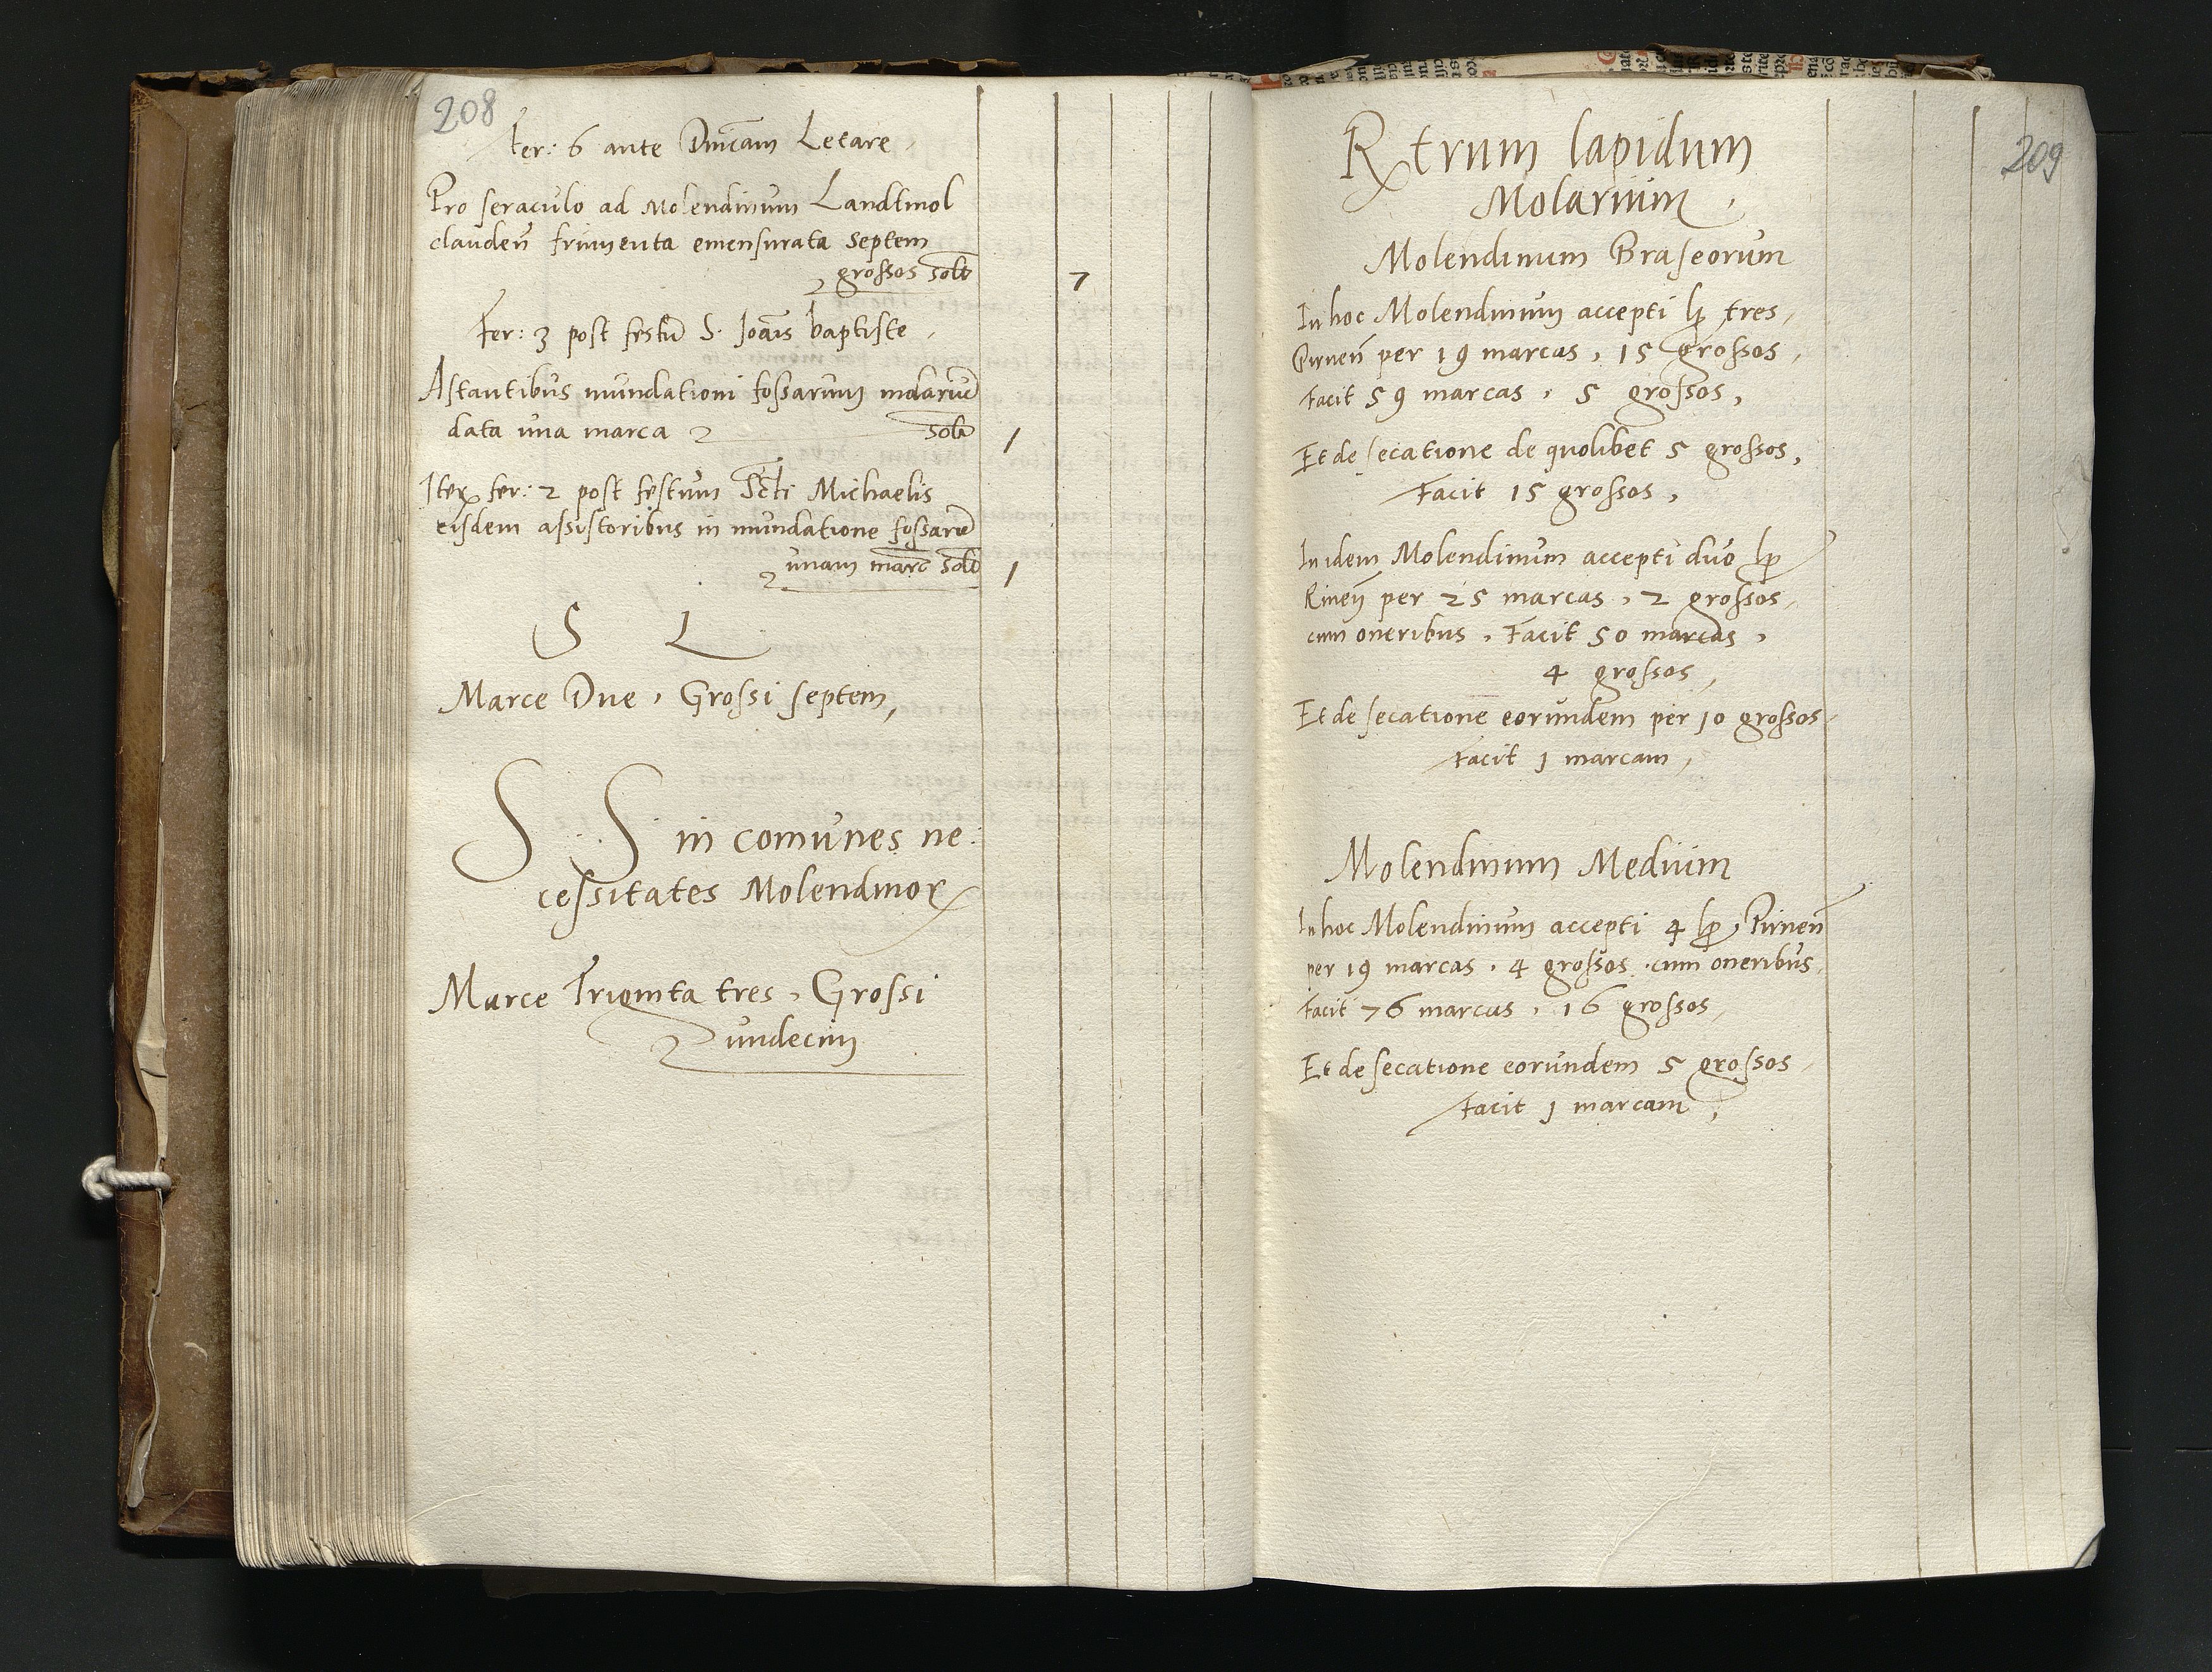 208
Fer: 6 ante Dnicam Letare
Pro seraculo ad Molendinum Landtmol
clauden frumenta emensurata septem
grossos solt
7
Fer: 3 post festu S. Joais baptiste
Astantibus mundationi fossarum molaru
data una marca solt
1
Item fer: 2 post festum Scti Michaelis
eisdem assistoribus in mundatione fossaru
unam marc solt
1
S L
Marce Due, Grossi septem,
S. S. in comunes ne:
cessitates Molendinor
Marce Triginta tres, Grossi
undecim
209
Rtrum lapidum
Molarium,
Molendinum Braseorum
In hoc Molendinum accepti lp tres,
Pirnen per 19 marcas, 15 grossos,
Facit 59 marcas, 5 grossos,
Et de secatione de quolibet 5 grossos,
Facit 15 grossos,
In idem Molendinum accepti duo lp
Rinen per 25 marcas, 2 grossos,
cum oneribus, Facit 50 marcas,
4 grossos,
Et de secatione eorundem per 10 grossos
Facit 1 marcam,
Molendinum Medium
In hoc Molendinum accepti 4 lp, Pirnen
per 19 marcas, 4 grossos, cum oneribus,
Facit 76 marcas, 16 grossos,
Et de secatione eorundem 5 grossos,
Facit 1 marcam,